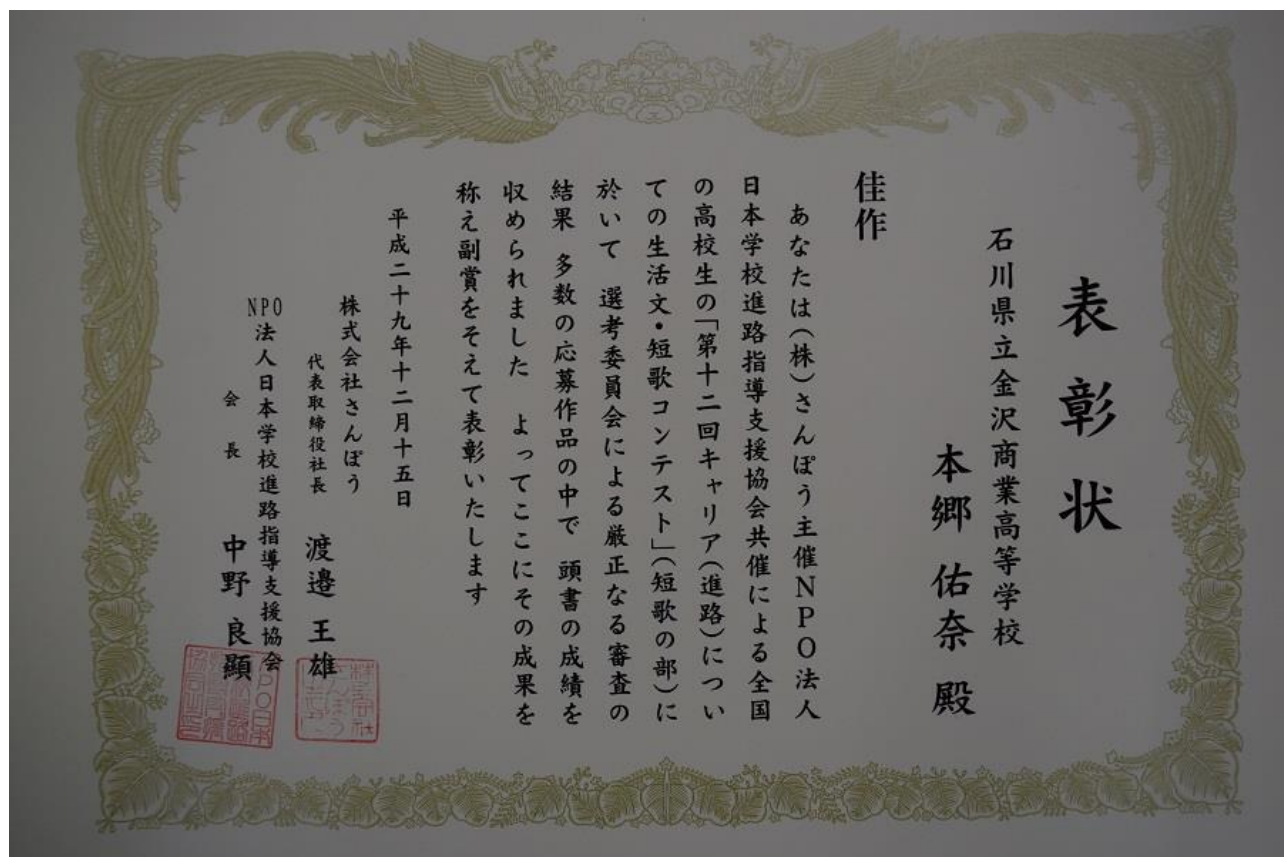 表彰状
石川県立金沢商業高等学校
本郷 佑奈 殿
佳作
あなたは(株)さんぽう主催NPO法人
日本学校進路指導支援協会共催による全国
の高校生の「第十二回キャリア(進路)につい
ての生活文・短歌コンテスト」(短歌の部)に
於いて 選考委員会による厳正なる審査の
結果 多数の応募作品の中で 頭書の成績を
収められました よってここにその成果を
称え副賞をそえて表彰いたします
平成二十九年十二月十五日
株式会社さんぽう
代表取締役社長 渡邉 王雄
NPO法人日本学校進路指導支援協会
会長 中野 良顯